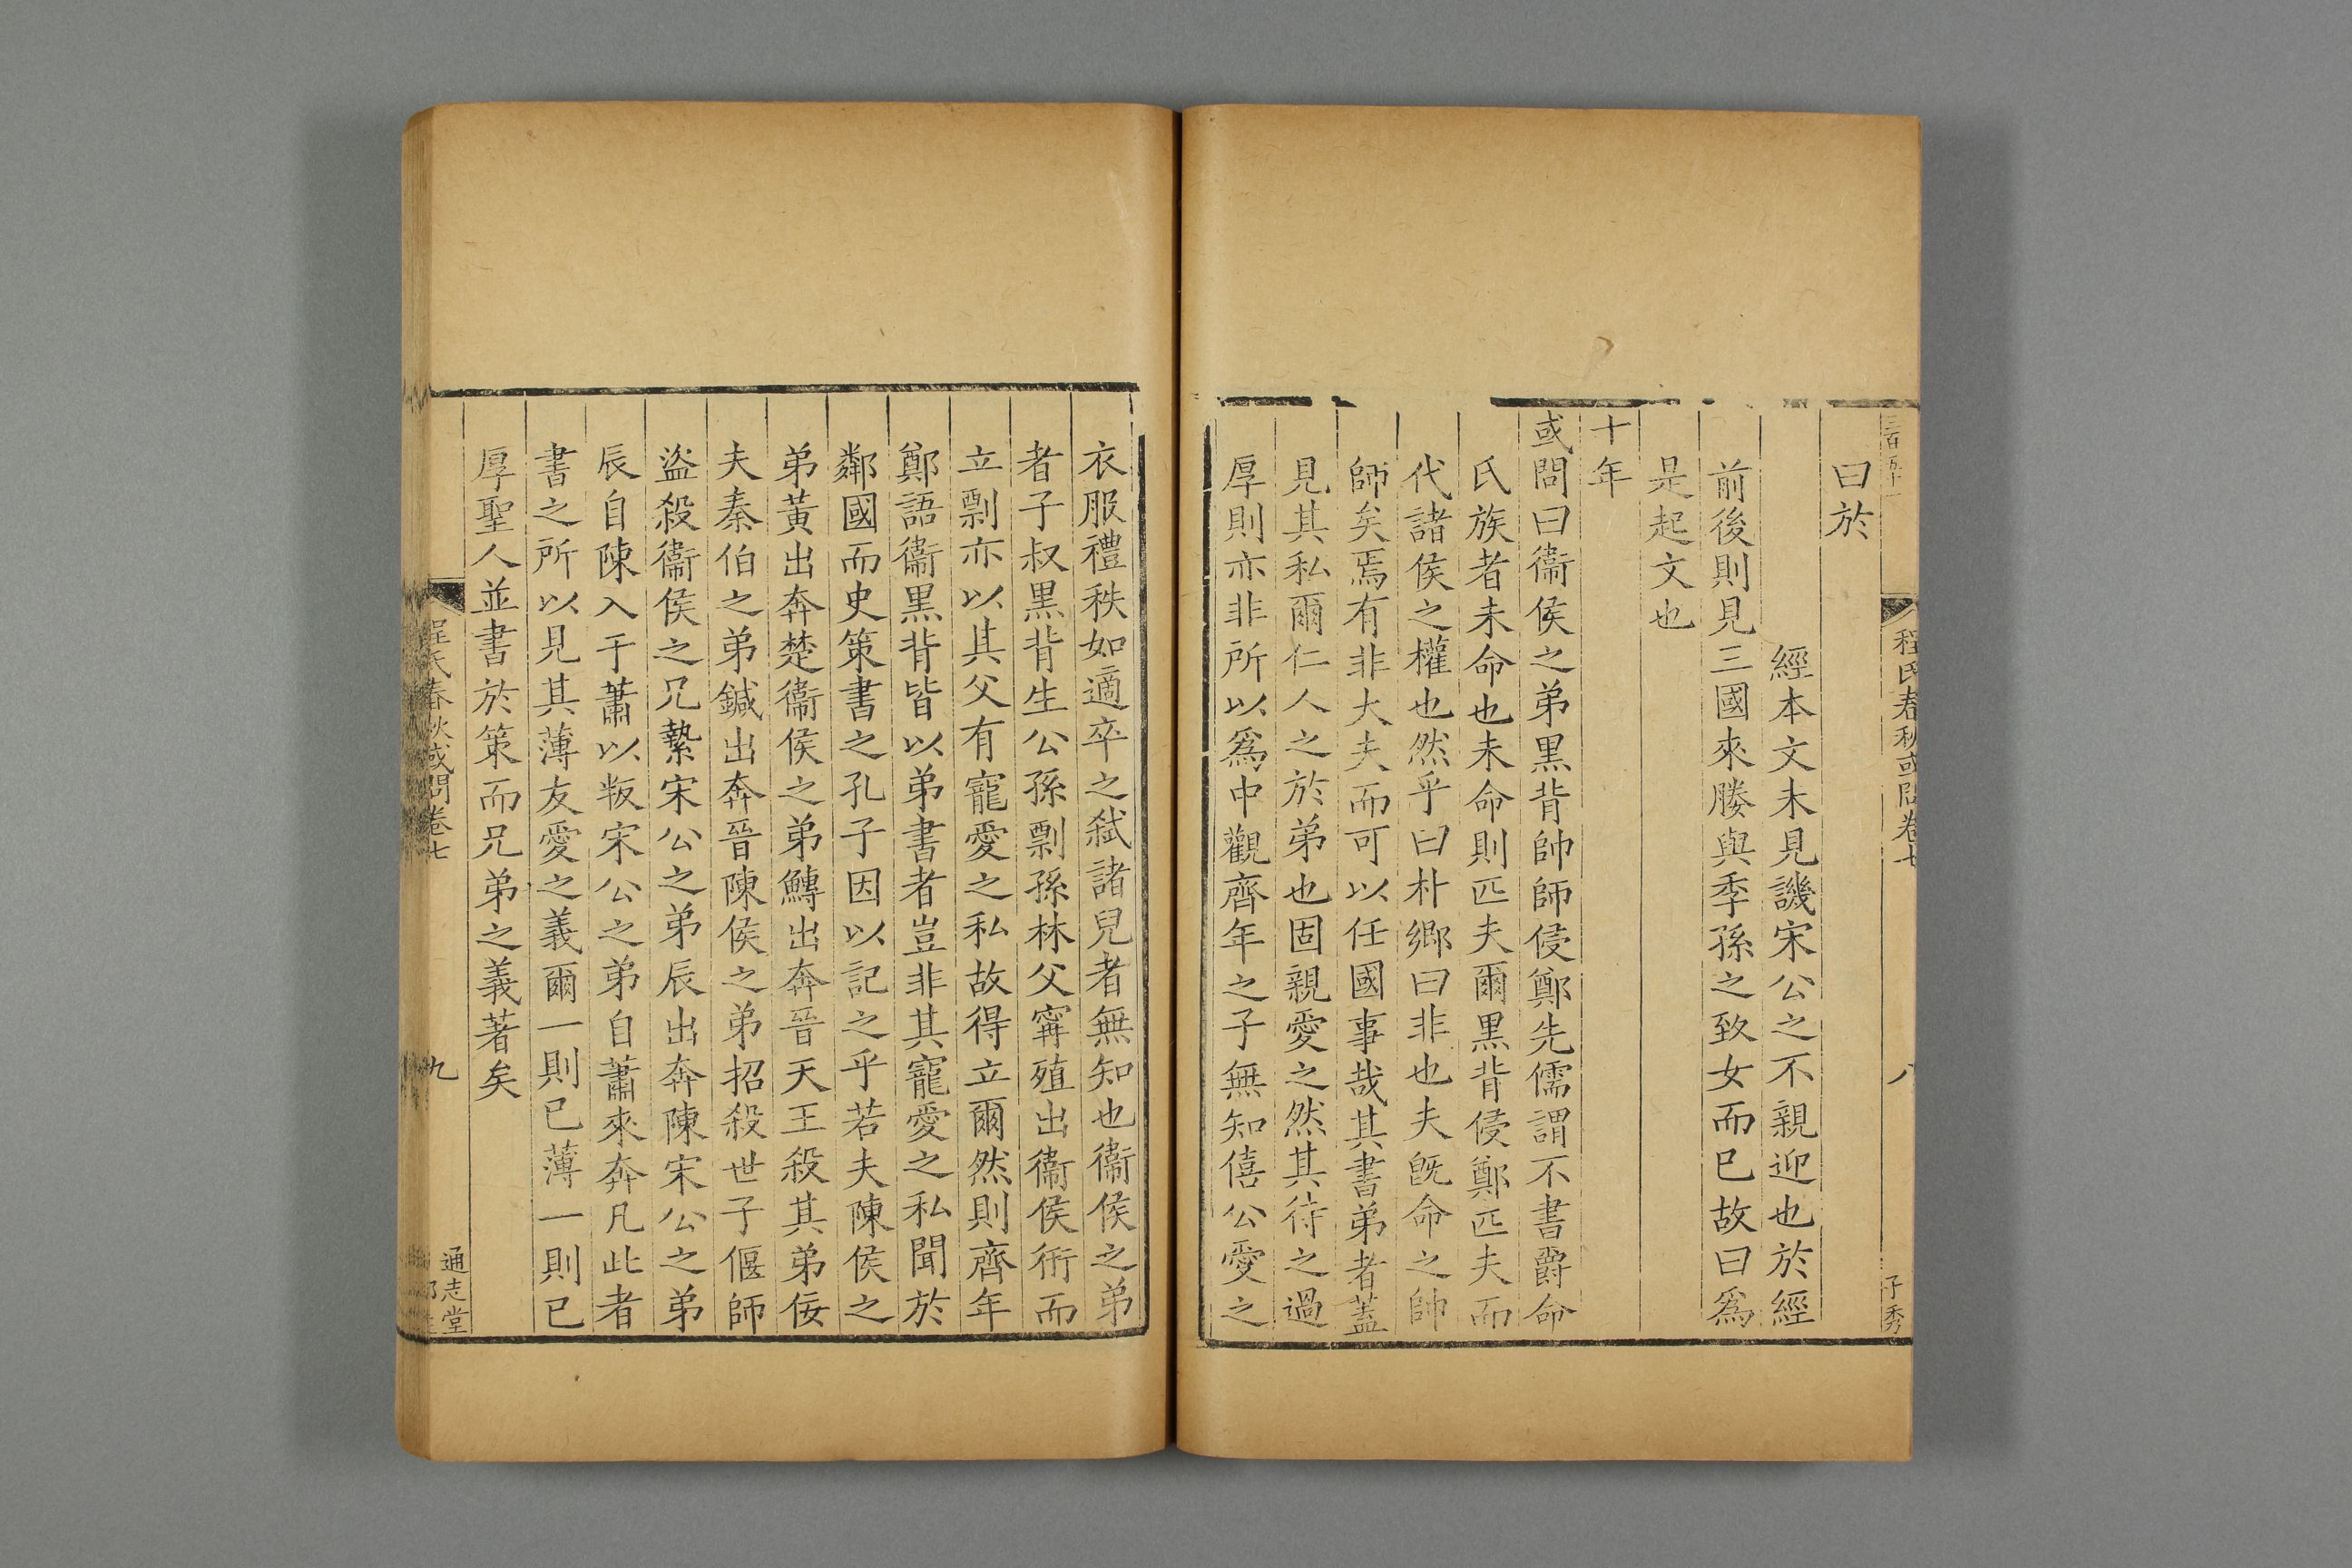 程氏春秋或問卷七
八
子秀
曰於
經本文未見譏宋公之不親迎也於經
前後則見三國來媵與季孫之致女而已故曰爲
是起文也
十年
或問曰衞侯之弟黑背帥師侵鄭先儒謂不書爵命
氏族者未命也未命則匹夫爾黑背侵鄭匹夫而
代諸侯之權也然乎曰朴鄉曰非也夫旣命之帥
師矣焉有非大夫而可以任國事哉其書弟者蓋
見其私爾仁人之於弟也固親愛之然其待之過
厚則亦非所以爲中觀齊年之子無知僖公愛之
衣服禮秩如適卒之弑諸兒者無知也衞侯之弟
者子叔黑背生公孫剽孫林父甯殖出衞侯衎而
立剽亦以其父有寵愛之私故得立爾然則齊年
鄭語衞黑背皆以弟書者豈非其寵愛之私聞於
鄰國而史策書之孔子因以記之乎若夫陳侯之
弟黃出奔楚衞侯之弟鱄出奔晉天王殺其弟佞
夫秦伯之弟鍼出奔晉陳侯之弟招殺世子偃師
盜殺衞侯之兄縶宋公之弟辰出奔陳宋公之弟
辰自陳入于蕭以叛宋公之弟自蕭來奔凡此者
書之所以見其薄友愛之義爾一則已薄一則已
厚聖人並書於策而兄弟之義著矣
程氏春秋或問卷七
九
通志堂